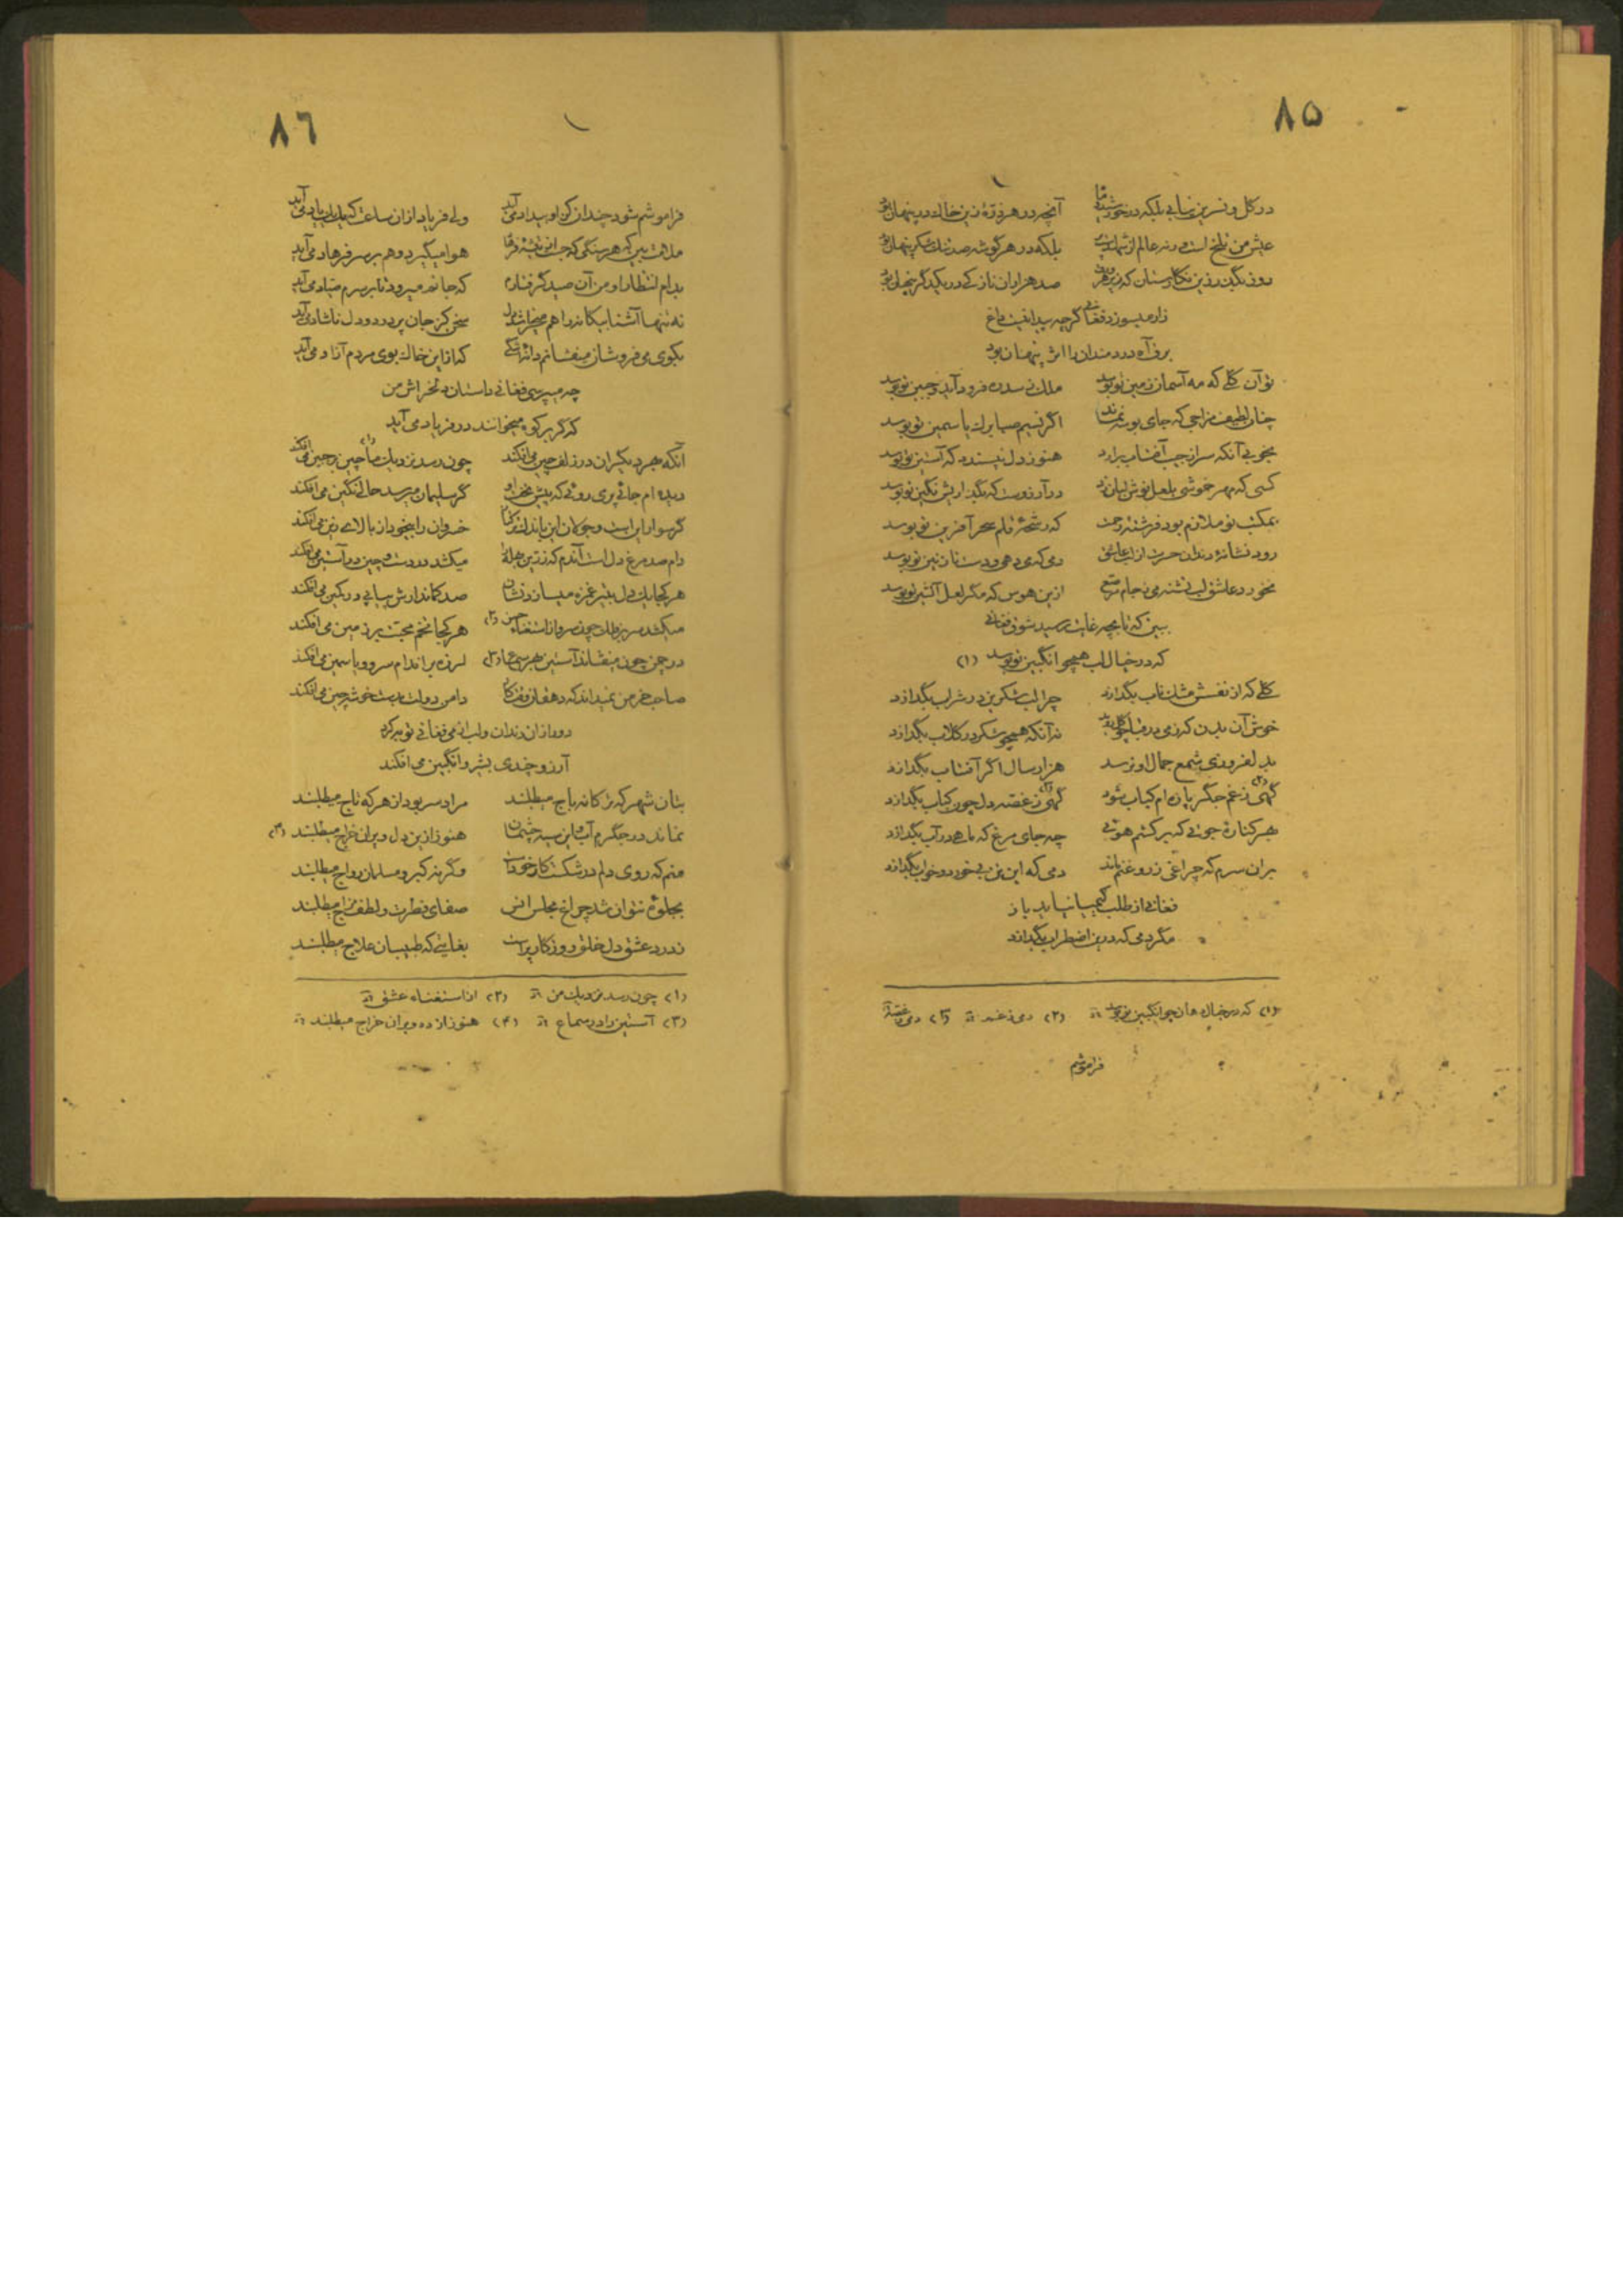 ۸۵
در گل و نسرین نیابی بلکه در خورشید و ماه آنچه در هر ذره زین خاک در پنهان بود
عیش من تلخ است ورنه عالم از بلکه در هر گوشه صد تنگ شکر پنهان بود
صد هزاران نازکی در یکدگر پنهان بود
زار میسوزد فغانی گرچه پیدا نیست داغ
برق آه دردمندان را اثر پنهان بود
تو آن گلی که مه آسمان زمین تو بوسد ملک ز سدره فرود آید و جبین تو بوسد
چنان لطیف مزاجی که جای بوسه نماند اگر نسیم صبا برگ یاسمین تو بوسد
بخوبی آنکه سر از جیب آفتاب برآرد هنوز دل نپسندد که آستین تو بوسد
کسی که مهر خموشی بلعل نوش لبان زد در آرزوست که یکبار پیش نگین تو بوسد
بمکتب تو ملازم بود فرشته رحمت که رشحهٔ قلم سحر آفرین تو بوسد
رود نشانهٔ دندان حسرت از لب عاشق دمی که می دهی و دست نازنین تو بوسد
نخورد عاشق لب تشنه می ز جام مرصع ازین هوس که مگر لعل آتشین تو بوسد
ببین که تا بچه غایت رسید شوق فغانی
که در خیال لب همچو انگبین تو بوسد (۱)
گلی که از نفسش مشک ناب بگدازد چرا لب شکرین در شراب بگدازد
خوش آن بدن که نه آنکه همچو شکر در گلاب بگدازد
بدلفروزی شمع جمال او نرسد هزار سال اگر آفتاب بگدازد
گهی ز غم جگر پاره ام کباب شود گهی ز غصه دل چون کباب بگدازد
بهر کنارهٔ جوئی که برکشم هوئی چه جای مرغ که ماهی در آب بگدازد
بران سرم که چراغی ز روغنم ماند دمی که این تن بی خورد و خواب بگدازد
فغانی از طلب کیمیا نیابد باز
مگر دمی که درین اضطراب بگدازد
(۱) که در خیال همان چو انگبین تو بوسد (۲) دمی ز غم (۳) دمی ز غصه
فراموشم
۸٦
فراموشم شود چندان کز او بیداد می آید ولی فریاد از آن ساعت که یک یک یاد می آید
ملامت بین که هر سنگی که جست از تیشهٔ فرهاد هوا میگیرد و هم بر سر فرهاد می آید
بدام انتظار او من آن صید گرفتارم که جانم میرود تا بر سرم صیاد می آید
نه تنها آشنا بیگانه را هم میخراشد دل سخن کز جان پر درد و دل ناشاد می آید
بکوی می فروشان میفشانم دانهٔ اشکی که از این خاک بوی مردم آزاد می آید
چه میپرسی فغانی داستان دلخراش من
که گر بر کوه میخوانند در فریاد می آید
آنکه بهر دیگران در زلف چین می افکند چون رسد نزدیک ما چین بر جبین می افکند (۱)
دیده ام جائی پری روئی که پیش تخت او گر سلیمان میرسد حالی نگین می افکند
گر سوار این است و جولان این خسروان را بیخود از بالای زین می افکند
دام صد مرغ دل است آندم که میکشد در دست و چین در آستین می افکند
هر کجا یک دل بتیر غمزه میسازد نشان صد کماندارش ز پی در کمین می افکند
میکشد سر بر فلک چون سرو از استغنای حسن (۲) هر کجا تخم محبت بر زمین می افکند
در چمن چون میفشاند آستین بهر سماع (۳) لرزه بر اندام سرو و یاسمین می افکند
صاحب خرمن نمیداند که دهقان دامن دولت بدست خوشه چین می افکند
دور از آن دندان و لب از می فغانی توبه کرد
آرزو چندی بشیر و انگبین می افکند
بتان شهر که ترکانه باج میطلبند مراد سر بود از هر که تاج میطلبند
نماند در جگرم آب و این سیه چشمان هنوز ازین دل ویران خراج میطلبند (۴)
منم که روی دلم در شکست کار خودست وگرنه گبر و مسلمان رواج میطلبند
بجلوه نتوان شد چراغ مجلس انس صفای فطرت و لطف مزاج میطلبند
ز درد عشق دل خلق روزگار پر است بغایتی که طبیبان علاج میطلبند
(۱) چون رسد نزدیک من (۲) از استغناء عشق
(۳) آستین را در سماع (۴) هنوز از ده ویران خراج میطلبند